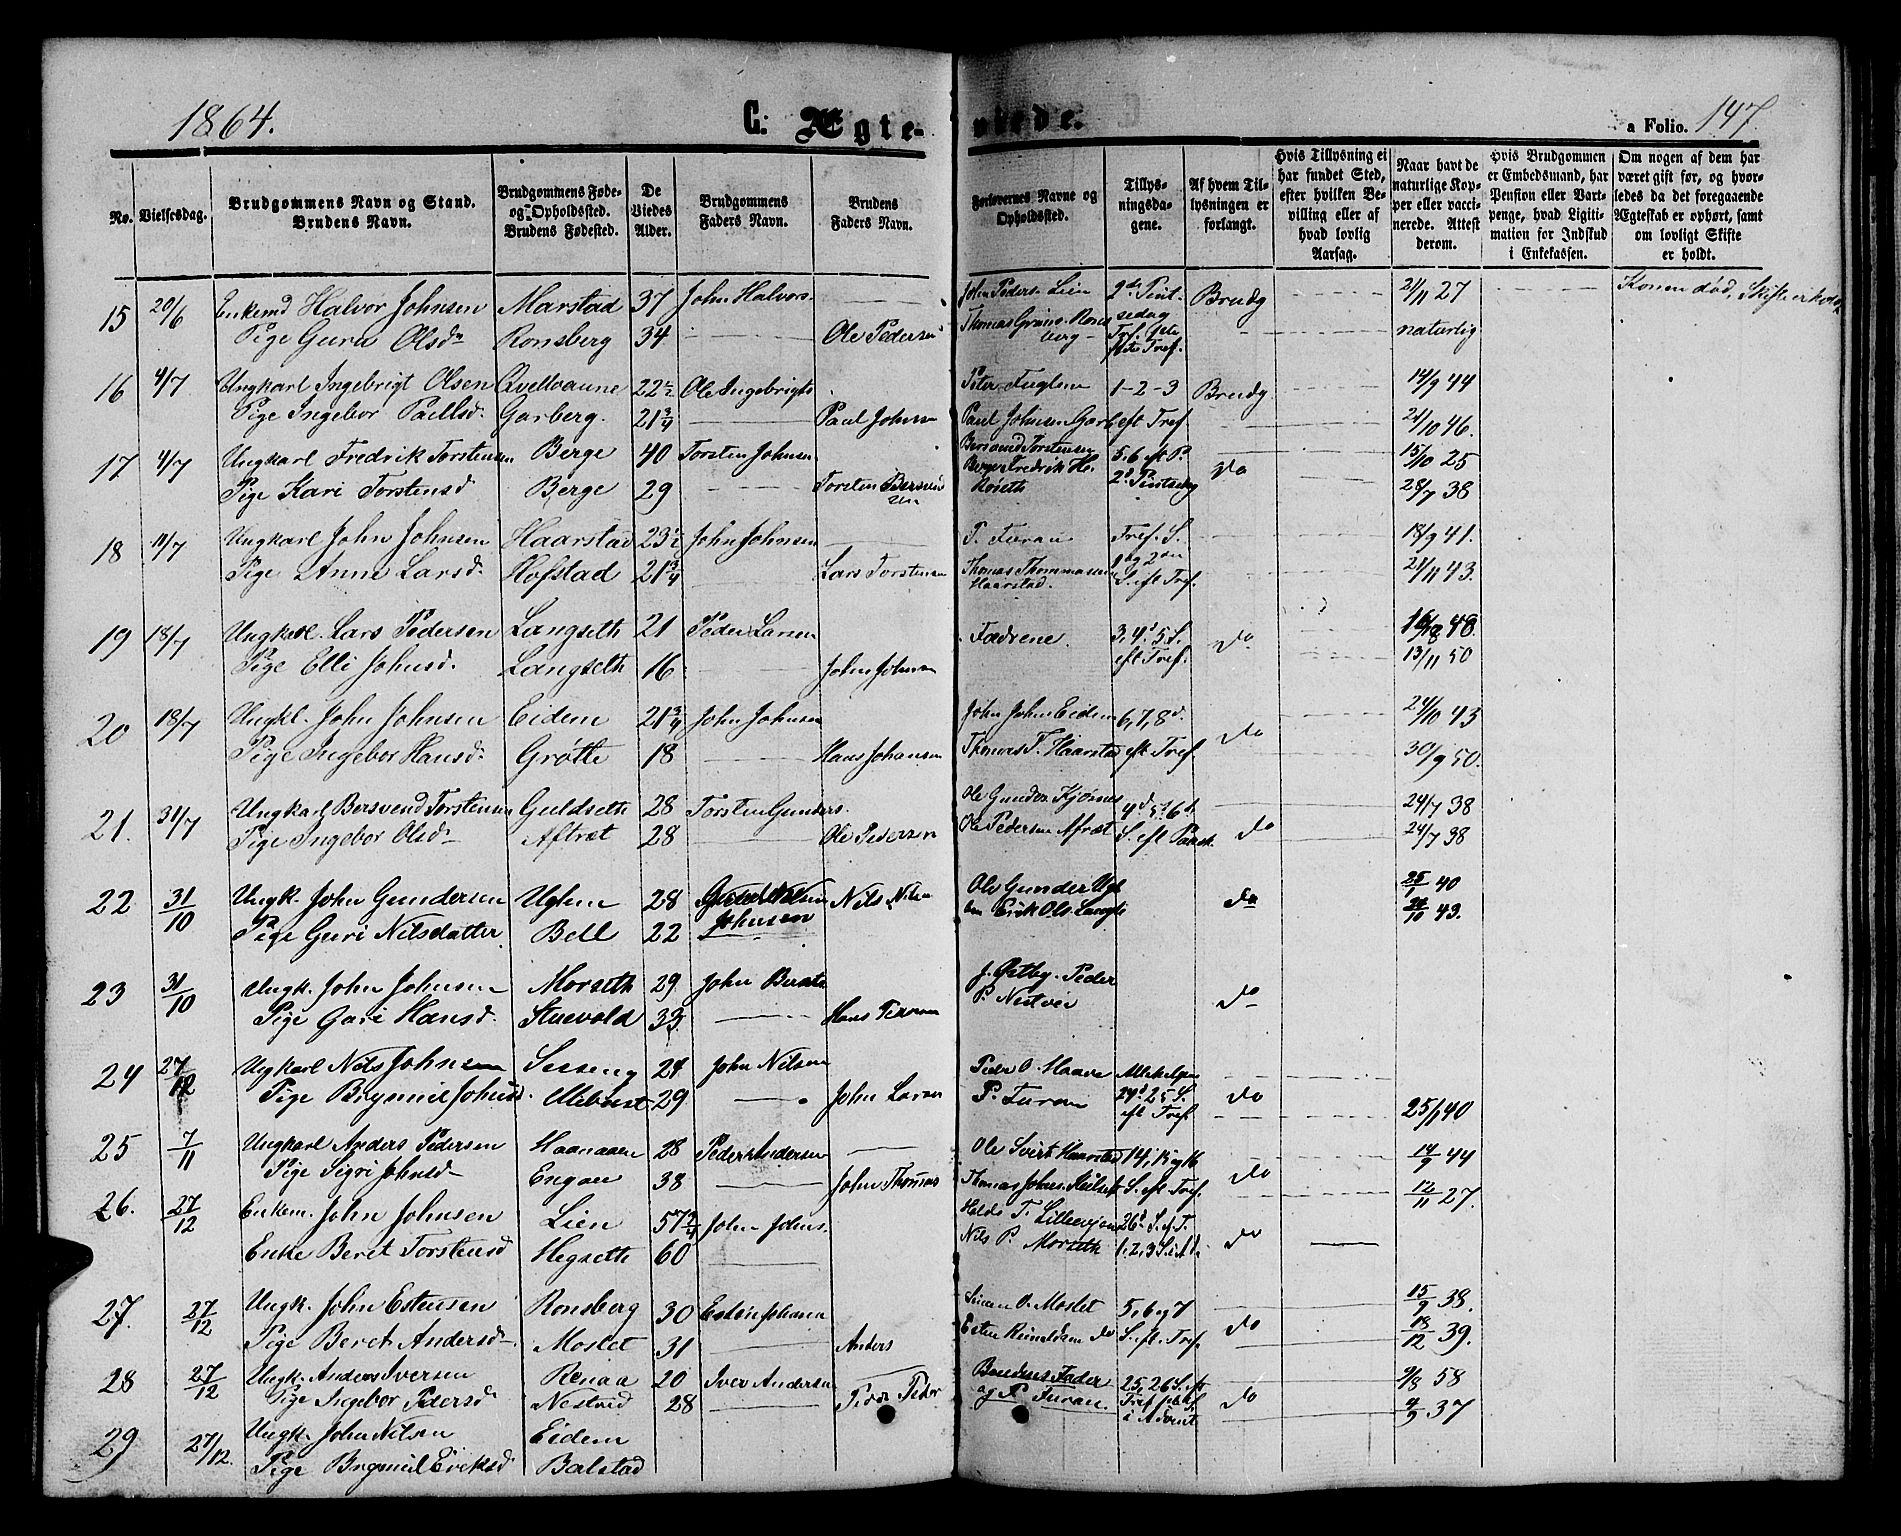 1864.
C. Ægteviede.
a Folio. 147.
No. Vielsesdag. Brudgommens Navn og Stand. Brudens Navn. Brudgommens Føde- og Opholdssted. Brudens Fødested. De Viedes Alder. Brudgommens Faders Navn. Brudens Faders Navn. Forlovernes Navne og Opholdssted. Tillysningsdagene. Af hvem Tillysningen er forlangt. Hvis Tillysning ei har fundet Sted, efter hvilken Bevilling eller af hvad lovlig Aarsag. Naar havt de naturlige Kopper eller vaccinerede. Attest derom. Hvis Brudgommen er Embedsmand, har Pension eller Vartpenge, hvad Ligitimation for Indskud i Enkekassen. Om nogen af dem har været gift før, og hvorledes da det foregaaende Ægteskab er ophørt, samt om lovligt Skifte er holdt.
15 20/6 Enkemd Halvor Johnsen Marstad 37 John Halvors. John Peders. Lien 2den Pint- Brudg 21/11 27 Konen død,
Pige Guru Olsdr Ronsberg 34 Ole Pedersen Thomas naturlig
16 4/7 Ungkarl Ingebrigt Olsen Qvellvaune 22½ Ole Ingebrigts Peter Fuglem 1-2-3 Brudg. 14/9 44
Pige Ingebor Paulsd. Garberg. 21¾ Paul Johnsen Paul Johnsen Garb eft Tref 21/10 46.
17 4/7 Ungkarl Fredrik Torstensen Berge 40 Torsten Johnsen Bersvend Torstensen 5, 6 eft P. do 15/10 25
Pige Kari Torstensd. Berge 29 Torsten Bersvendsen Røseth 2d Pintsedag 28/7 38
18 11/7 Ungkarl John Johnsen Haarstad 23½ John Johnsen P. Furan Tref. S. 18/9 41.
Pige Anne Larsd. Hofstad 21¾ Lars Torstensen Thomas Thommassen Haarstad. S. eft Tref. 21/11 43.
19 18/7 Ungkarl Lars Pedersen Langseth 21 Peder Larsen Fædrene. 3, 4, 5 S. do 48.
Pige Elli Johnsd. Langseth 16 John Johnsen eft Tref. 13/11 50
20 18/7 Ungkl. John Johnsen Eidem 21¾ John Johnsen John John Eidem 6, 7, 8d. do 24/10 43
Pige Ingebor Hansd. Grøtte 18 Hans Johansen Thomas T. Haarstad eft Tref. 30/9 50.
21. 31/7 Ungkarl Bersvend Torstensen Guldseth 28 Torsten Gunders. Ole Gunders. Kjøsnes 4d 5t 6te do 24/7 38
Pige Ingebor Olsdr Aftret 28 Ole Pedersen Ole Pedersen Afræt S. eft Paask. 24/7 38
22 31/10 Ungk. John Gundersen Uglem 28 Johnsen Nils Nilsen Ole Gunder Ugl do 25/1 40
Pige Guri Nilsdatter Bell 22 Erik Ols. Langs 43.
23 31/10 Ungk. John Johnsen Morseth 29 John Berets J. Østby. Peder do
Pige Gari Hansd. Stuevold 33 Hans P. Nestvei
24 27/12 Ungkarl Nils Johnsen Sesseng 24 John Nilsen Peder O. Haave Allehelgen do
Pige Brynnil Johnsd. Mebust 29 John Larsen P. Furan 24d 25 S. eft Tref. 25/1 40
25 7/11 Ungkarl Anders Pedersen Haanaaen 28 Peder Andersen Ole Haarstad 14, 15 og 16 do 14/9 44
Pige Sigri Johnsdr Engan 38 John Thomas Thomas Johns. S. eft Tref. 12/11 27.
26. 27/12 Enkem. John Johnsen Lien 57¾ John Johns. T. Lilleevjen 26d S. e. T. do
Enke Beret Torstensd Hegseth 60 Nils P. Morseth 1, 2, 3 S. i Ad.
27. 27/12 Ungk. John Estensen Ronsberg 30 Esten Johnsen O. Moslet 5, 6 og 7 do 15/9 38.
Pige Beret Andersd. Moslet 31 Anders Esten do S. eft. Tref. 18/12 39.
28 27/12 Ungk. Anders Iversen Renaa 20 Iver Andersen Brudens Fader 25, 26 S. eft do 9/8 58
Pige Ingebor Pedersd Nestved 28 Peder Peder og P. Furan. Tref i Advent 4/9 37
29 27/12. Ungk. John Nilsen Eidem
Pige Brynnil Eriksd Balstad